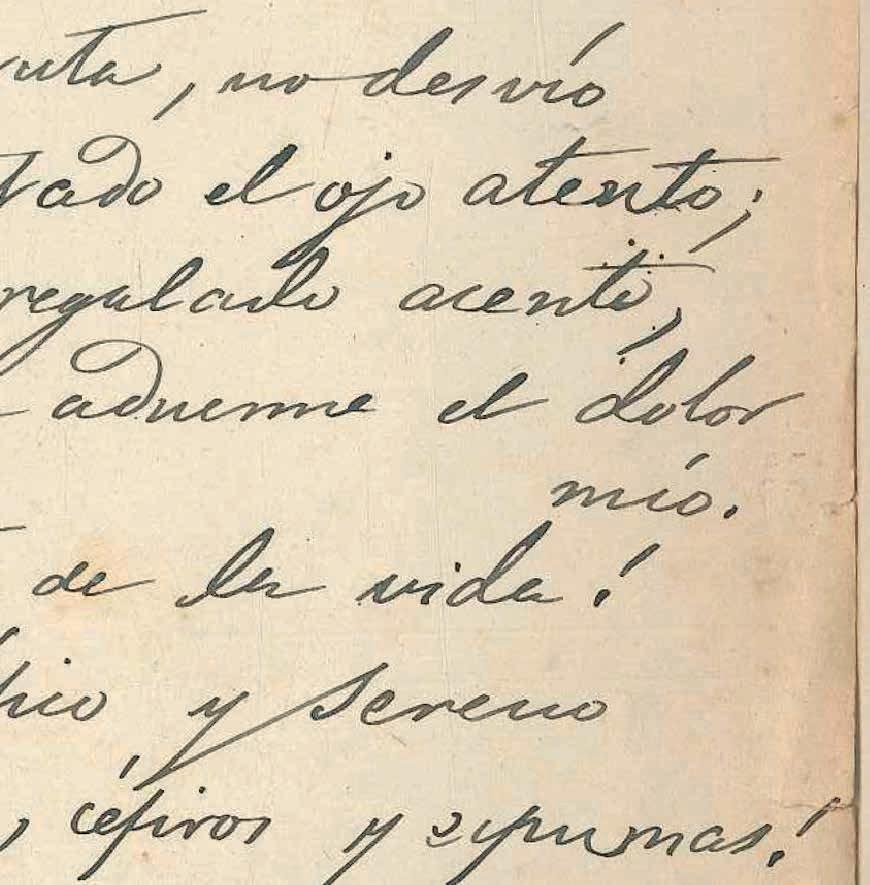 ruta, no desvío
tado el ojo atento;
regalado acento,
aduerme el dolor
mío.
de la vida!
pio y sereno
, céfiros y espumas!